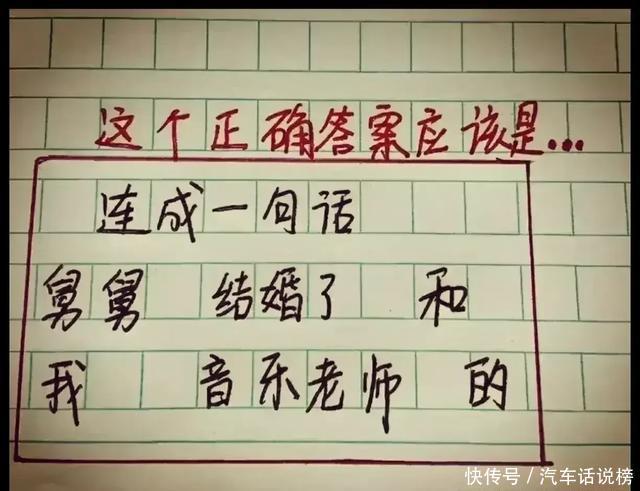 这个正确答案应该是...
连成一句话
舅舅 结婚了 和
我 音乐老师 的
快传号／汽车话说榜